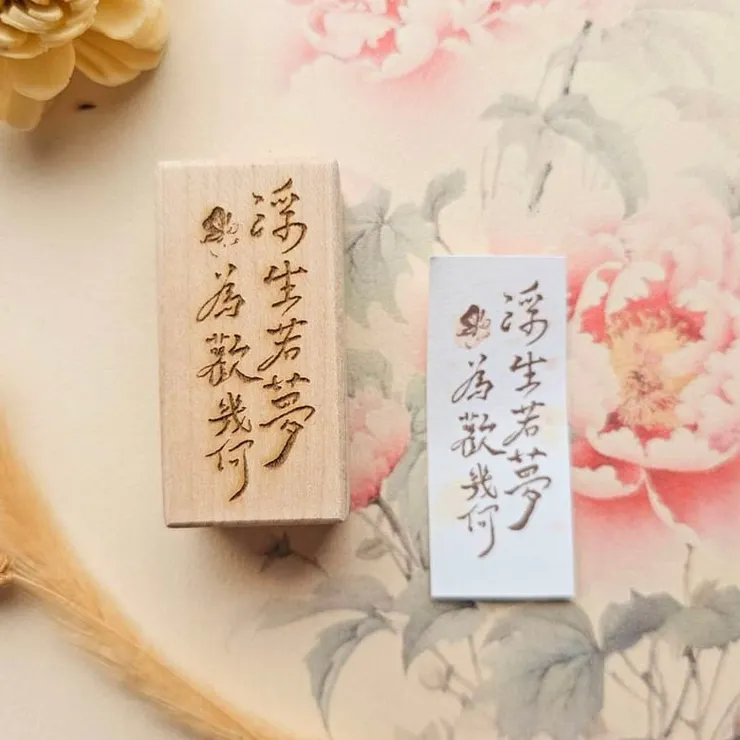 浮生若夢
為歡幾何
浮生若夢
為歡幾何